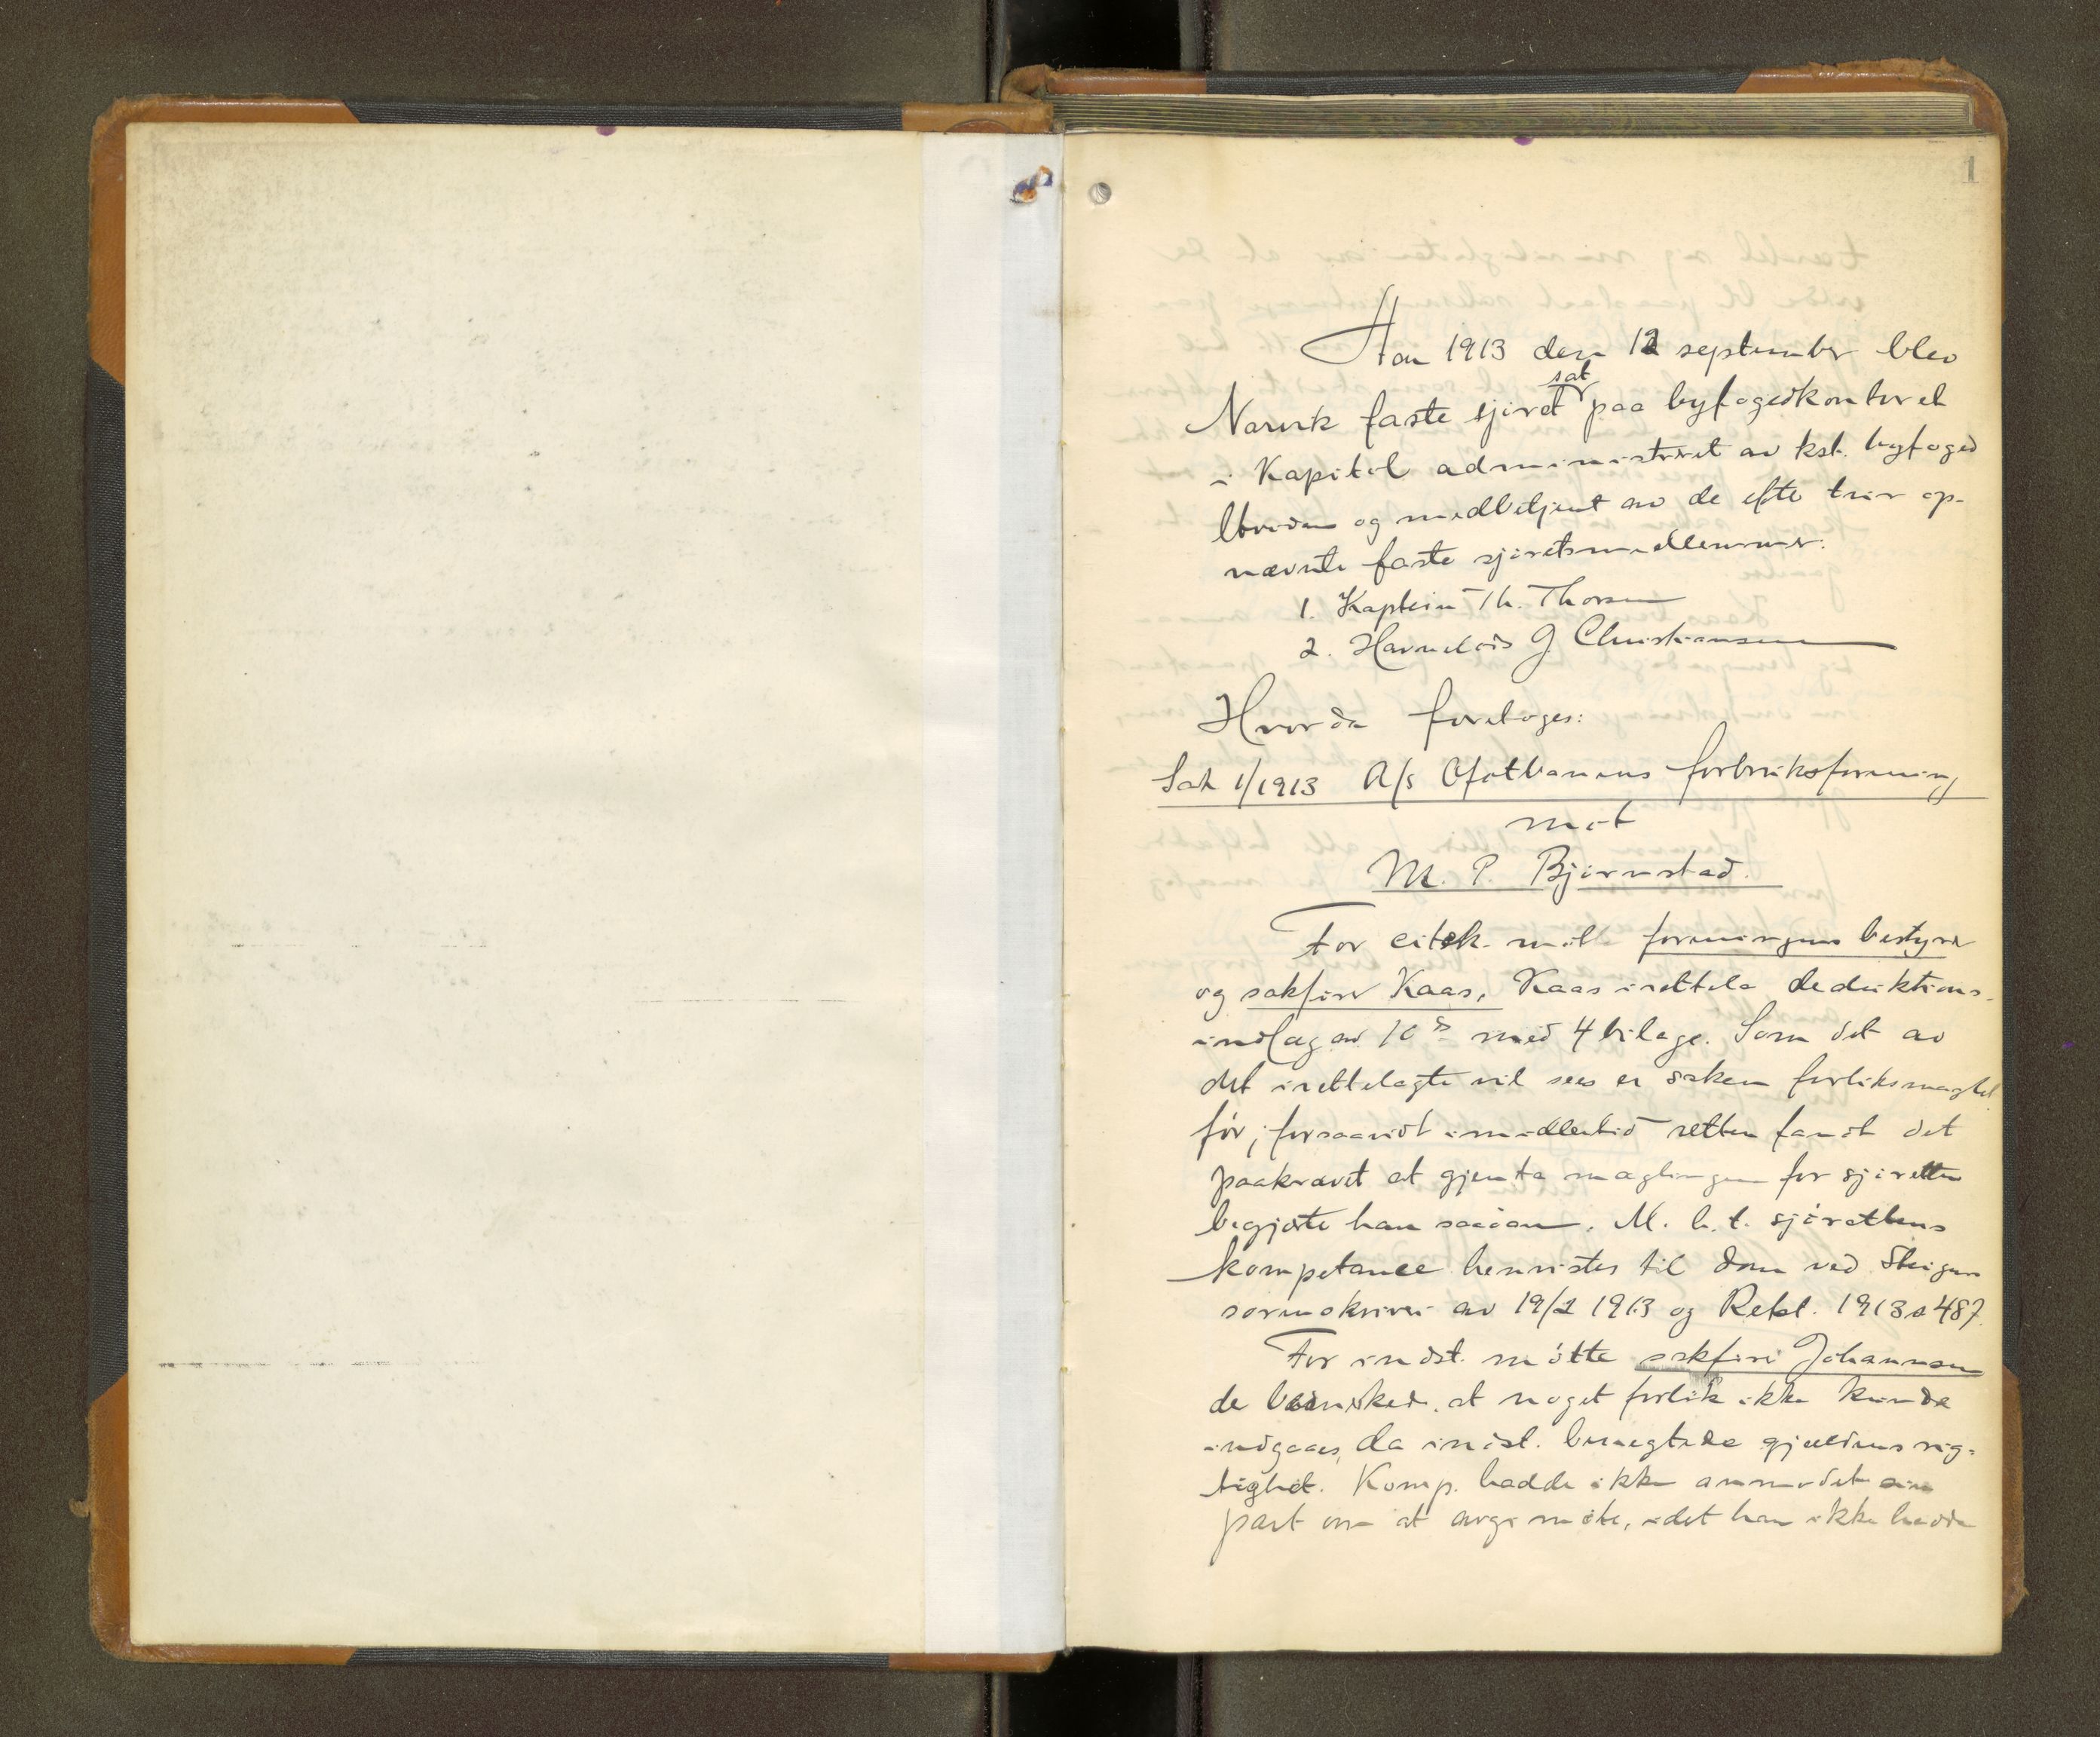 1
Aar 1913 den 12 september blev
Narvik faste sjøret sat paa byfogedkontoret
i Kapitol administreret av kst. byfoged
og medbetjent av de efter tur op-
nævnte faste sjøretsmedlemmer:
1. Kaptein Th. Thorsen
2. Havnelods J. Christiansen
Hvorda foretoges:
Sak 1/1913 A/s Ofotbanens forbruksforening
mot
M. P. Bjørnstad.
For citsk. møtte foreningens bestyrer
og sakfører Kaas. Kaas irettela deduktions-
indlæg av 10 ds med 4 bilage. Som det av
det irettelagte vil sees er saken forliksmæglet
før; forsaavidt imidlertid retten fandt det
paakrævet at gjenta mæglingen for sjøretten
begjærte han saadan. M. h. t. sjørettens
kompetance henvistes til dom ved Steigen
sorenskriveri av 19/2 1913 og Retst. 1913 s 487.
For indst. møtte sakfører Johannesen
der bemerket, at noget forlik ikke kunde
indgaaes, da indst. benegtede gjældens rig-
tighet. Komp. hadde ikke anmodet sin
part om at avgi møte, idet han ikke hadde